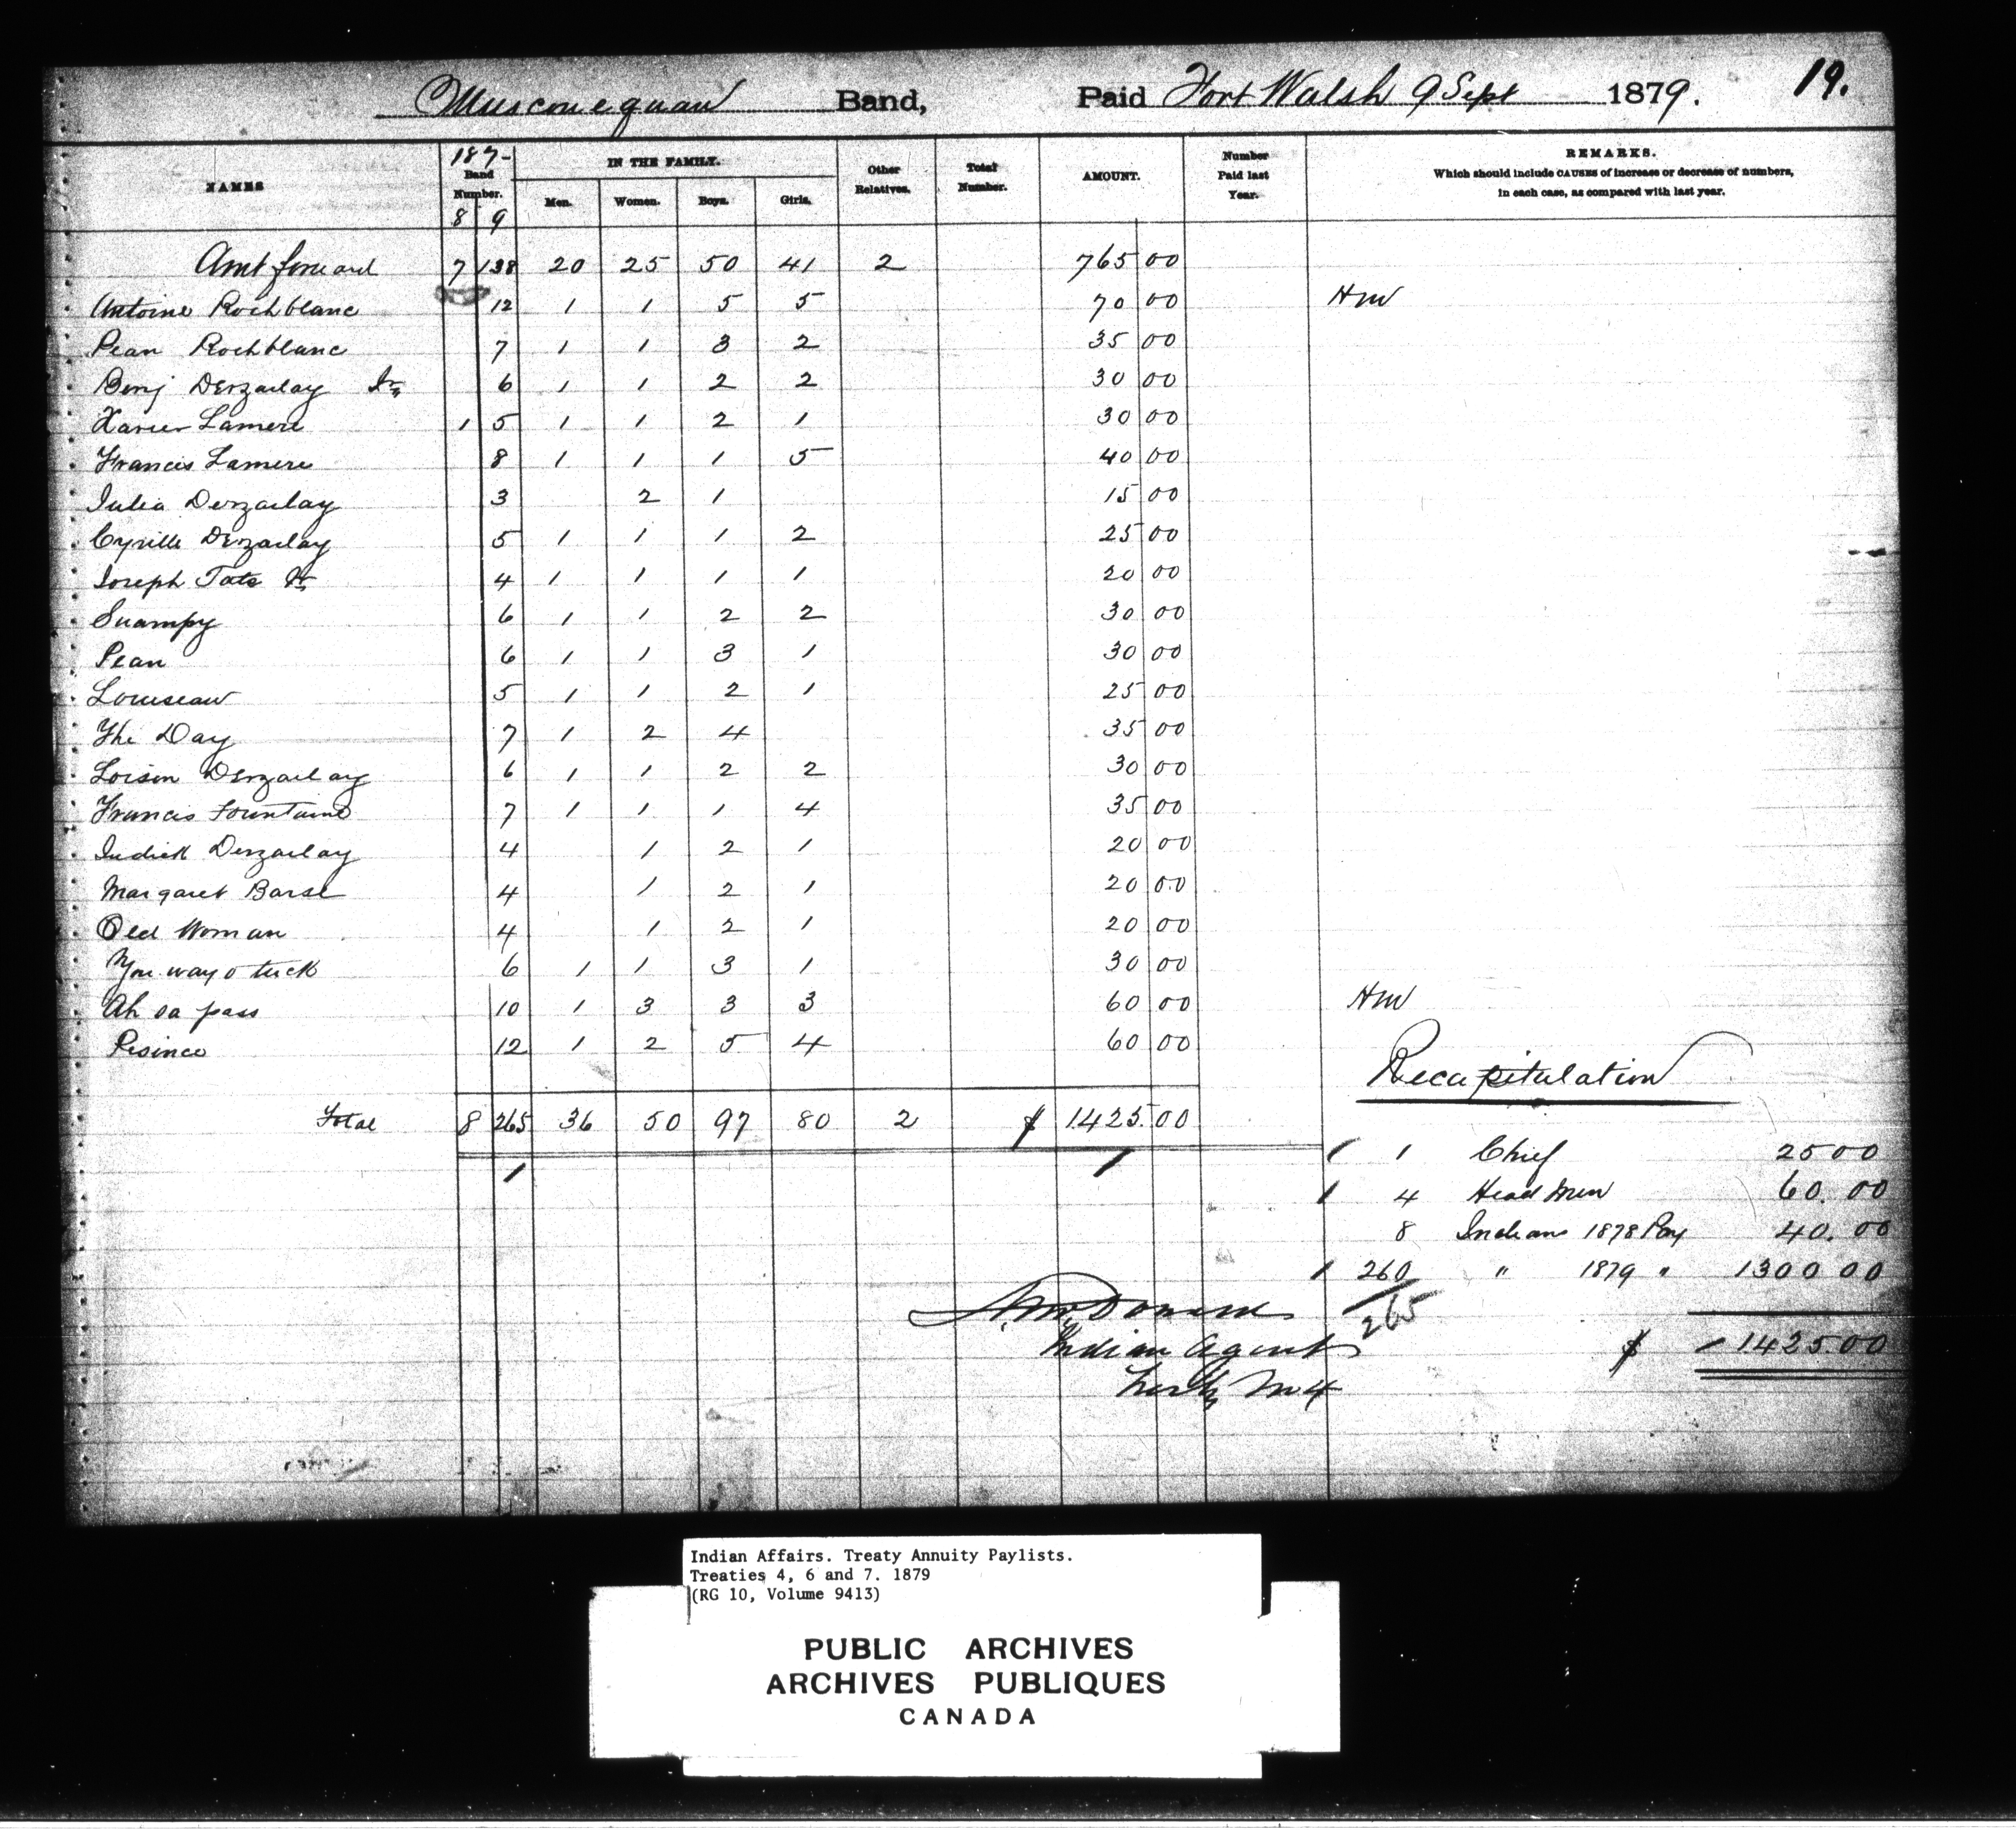 Muscouequan Band, Paid Fort Walsh 9 Sept 1879. 19.
NAMES 187- Band Number. 8 9 IN THE FAMILY. Men. Women. Boys. Girls. Other Relatives. Total Number. AMOUNT. Number Paid last Year. REMARKS. Which should include CAUSES of increase or decrease of numbers, in each case, as compared with last year.
Amt forward 7 138 20 25 50 41 2 765 00
Antoine Rochblanc 12 1 1 5 5 70 00 HM
Pean Rochblanc 7 1 1 3 2 35 00
Benj Derzarlay 6 1 1 2 2 30 00
Xavier Lamere 1 5 1 1 2 1 30 00
Francis Lamere 8 1 1 1 5 40 00
Julia Derzarlay 3 2 1 15 00
Cyrille Derzarlay 5 1 1 1 2 25 00
Joseph Tate 4 1 1 1 1 20 00
Swampy 6 1 1 2 2 30 00
Pean 6 1 1 3 1 30 00
Louiseau 5 1 1 2 1 25 00
The Day 7 1 2 4 35 00
Loison Derzarlay 6 1 1 2 2 30 00
Francis Fountaine 7 1 1 1 4 35 00
Derzarlay 4 1 2 1 20 00
Margaret Barse 4 1 2 1 20 00
Old Woman 4 1 2 1 20 00
You way o tuck 6 1 1 3 1 30 00
Ah sa pass 10 1 3 3 3 60 00 HM
Pisince 12 1 2 5 4 60 00
Recapitulation
Total 8 265 36 50 97 80 2 $ 1425.00
1 Chief 25 00
4 Head Men 60.00
8 Indians 1878 Pay 40.00
260 " 1879 " 1300 00
265
$ 1425.00
A. McDonald
Indian Agent
Treaty No 4
Indian Affairs. Treaty Annuity Paylists.
Treaties 4, 6 and 7. 1879
(RG 10, Volume 9413)
PUBLIC ARCHIVES
ARCHIVES PUBLIQUES
CANADA